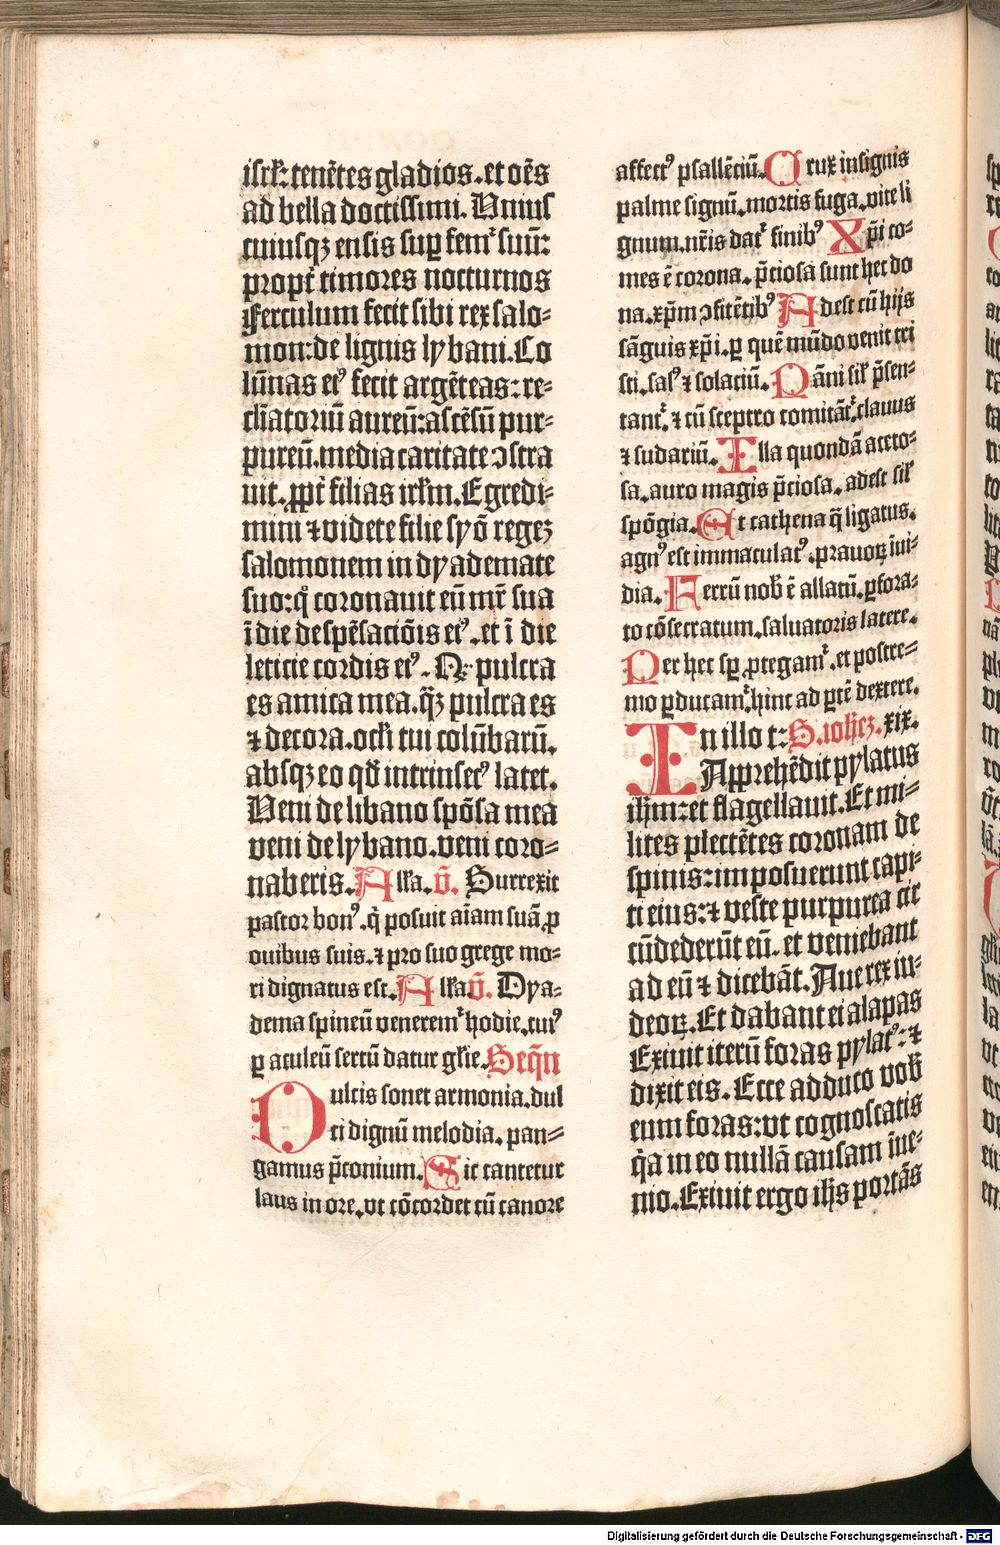 isrł: tenẽtes gladios. et oẽs
ad bella doctissimi. Vnius
cuiusqꝫ ensis suꝑ femꝰ suũ:
propt̃ timores nocturnos
Ferculum fecit sibi rex salo-
mon: de lignis lybani. Co
lũnas eiꝰ fecit argẽteas: re-
cłiatoriũ aureũ: ascẽsũ pur-
pureũ. media caritate ꝯstra
uit. ꝓpt̃ filias irłm. Egredi-
mini ⁊ videte filie syõ regeꝫ
salomonem in dyademate
suo: qͦ coronauit eũ mr̃ sua
ĩ die despẽsaciõis eiꝰ. et ĩ die
leticie cordis eiꝰ. Qꝫ pulcra
es amica mea. q̃ꝫ pulcra es
⁊ decora. ocłi tui colũbarũ.
absqꝫ eo qđ intrinsecꝰ latet.
Veni de libano spõsa mea
veni de lybano. veni coro-
naberis. Alła. ṽ. Surrexit
pastor bonꝰ. q̃ posuit aĩam suã ꝓ
ouibus suis. ⁊ pro suo grege mo-
ri dignatus est. Alła ṽ. Dya-
dema spineũ veneremꝰ hodie. cuiꝰ
ꝑ aculeũ sertũ datur głie. Seq̃n
Dulcis sonet armonia. dul
ci dignũ melodia. pan-
gamus p̃conium. Sic cantetur
laus in ore. vt cõcordet cũ canore
affectꝰ psallẽciũ. Crux insignis
palme signũ. mortis fuga. vite li
gnum. nr̃is datꝰ finibꝰ Xp̃i co-
mes ẽ corona. p̃ciosa sunt hec do
na. xp̃m ꝯfitẽtibꝰ Adest cũ hijs
sãguis xp̃i. ꝑ quẽ mũdo venit tri
sti. salꝰ ⁊ solaciũ. Pãni sił p̃sen-
tantꝰ. ⁊ cũ sceptro comitãtꝰ. clauus
⁊ sudariũ. Illa quondã aceto-
sa. auro magis p̃ciosa. adest sił
spõgia. Et cathena q̃ ligatus.
agnꝰ est immaculatꝰ. prauoꝝ ĩui-
dia. Ferrũ nob̃ ẽ allatũ. ꝑfora-
to cõsecratum. saluatoris latere.
Per hec sꝑ ꝓtegamꝰ. et postre-
mo ꝑducamꝰ. hinc ad ꝑtẽ dextere.
In illo t: S. iohẽꝫ. xix.
Apprehẽdit pylatus
ihm: et flagellauit. Et mi-
lites plectẽtes coronam de
spinis: imposuerunt capi-
ti eius: ⁊ veste purpurea cir
cũdederũt eũ. et veniebant
ad eũ ⁊ dicebãt. Aue rex iu-
deoꝝ. Et dabant ei alapas
Exiuit iterũ foras pylatꝰ: ⁊
dixit eis. Ecce adduco vob̃
eum foras: vt cognoscatis
q̃a in eo nullã causam ĩue-
nio. Exiuit ergo ihs portãs
Digitalisierung gefördert durch die Deutsche Forschungsgemeinschaft - DFG